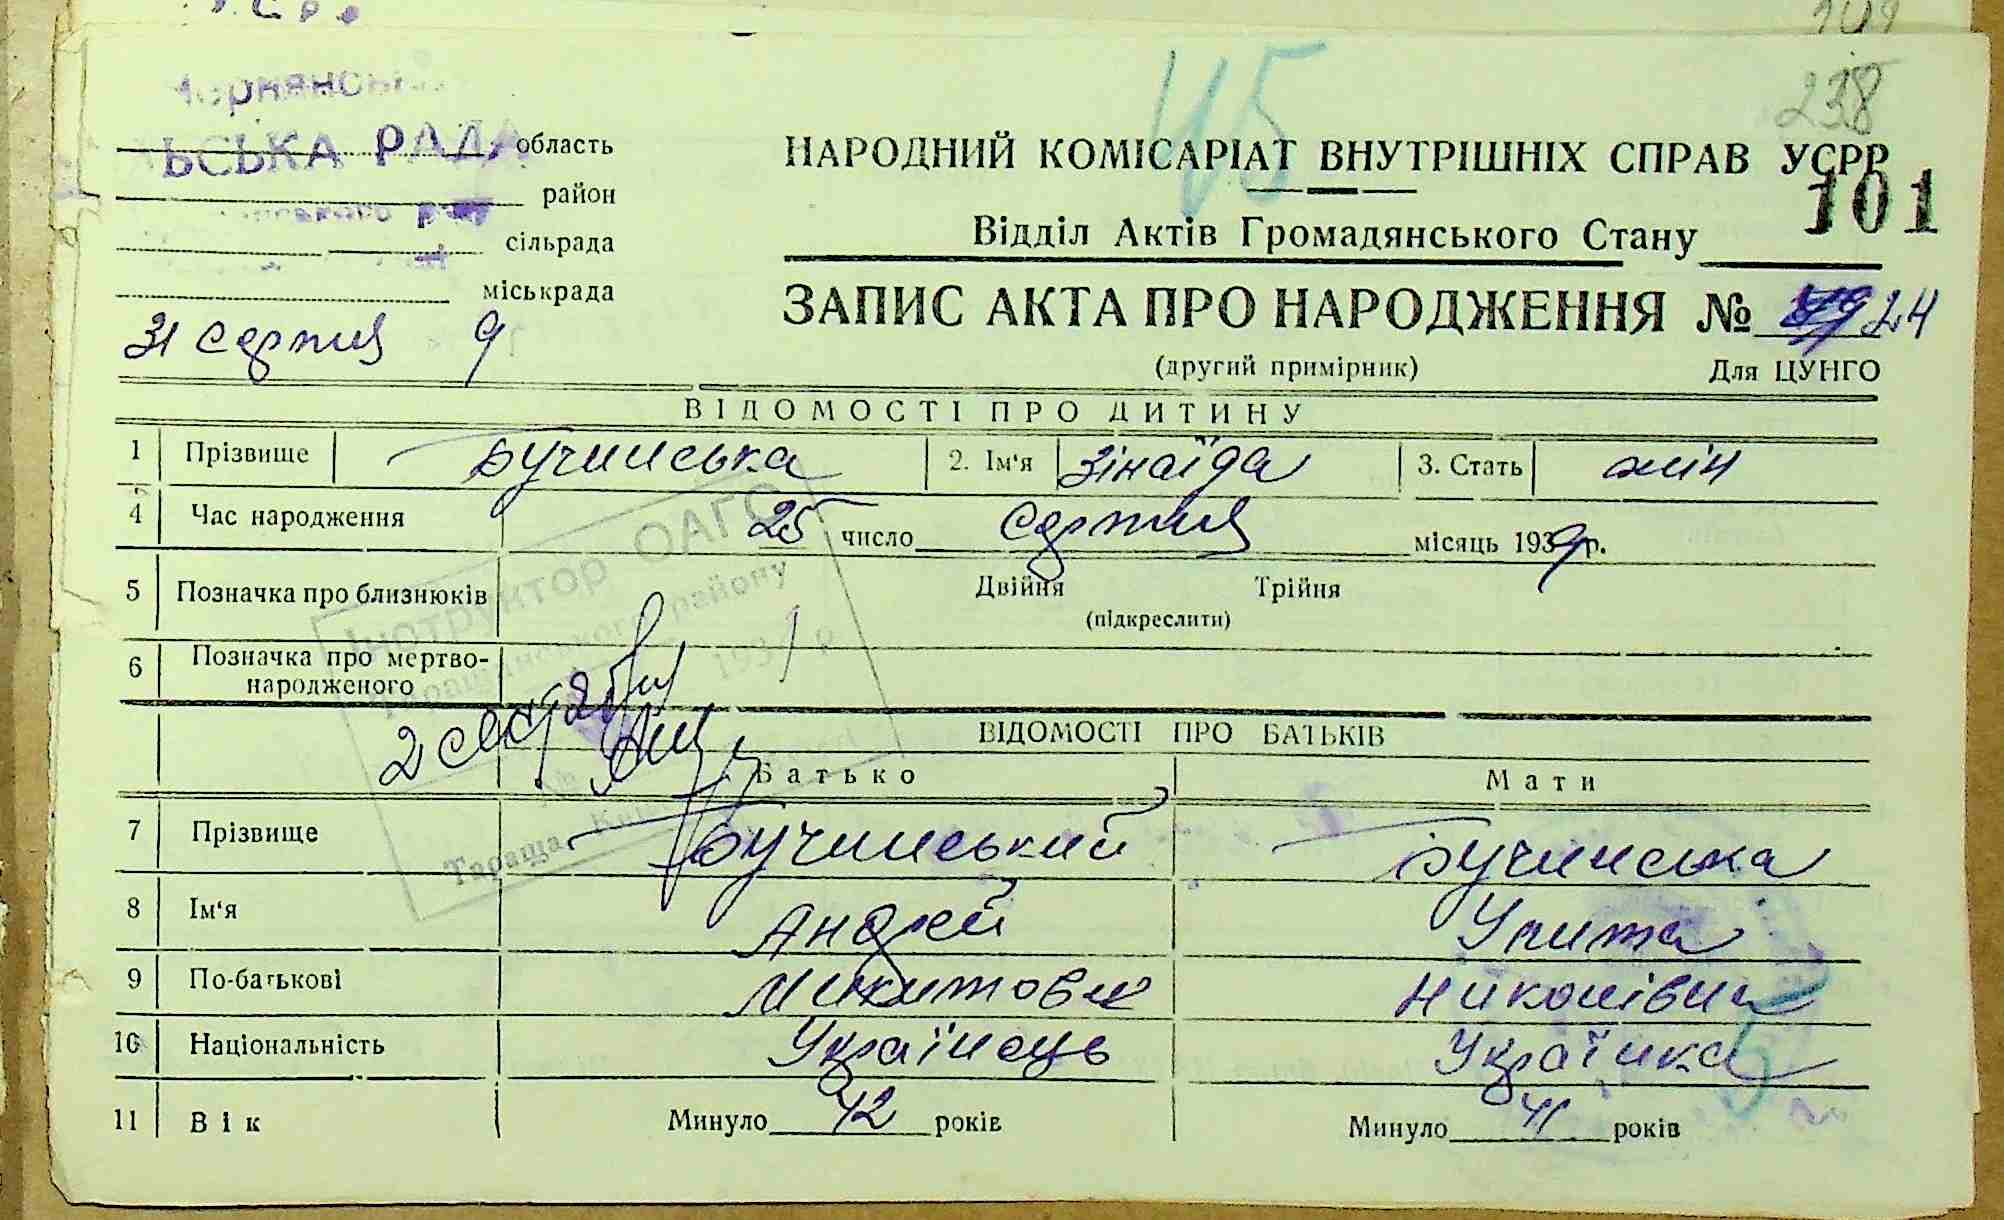 238
45
ЬСЬКА РАДА область
НАРОДНИЙ КОМІСАРІАТ ВНУТРІШНІХ СПРАВ УСРР
район
101
сільрада
Відділ Актів Громадянського Стану
міськрада
ЗАПИС АКТА ПРО НАРОДЖЕННЯ № 24
31 Серпня 9
(другий примірник) Для ЦУНГО
ВІДОМОСТІ ПРО ДИТИНУ
1 Прізвище Бучинська 2. Ім'я Зінаїда 3. Стать жін
4 Час народження 25 число Серпня місяць 1939 р.
5 Позначка про близнюків Двійня Трійня
(підкреслити)
6 Позначка про мертво-
народженого
Інструктор ОАГС
району
193 р
Тараща
ВІДОМОСТІ ПРО БАТЬКІВ
Батько Мати
7 Прізвище Бучинський Бучинська
8 Ім'я Андрей Улита
9 По-батькові Микитович Никонівна
10 Національність Українець Українка
11 Вік Минуло 42 років Минуло 41 років